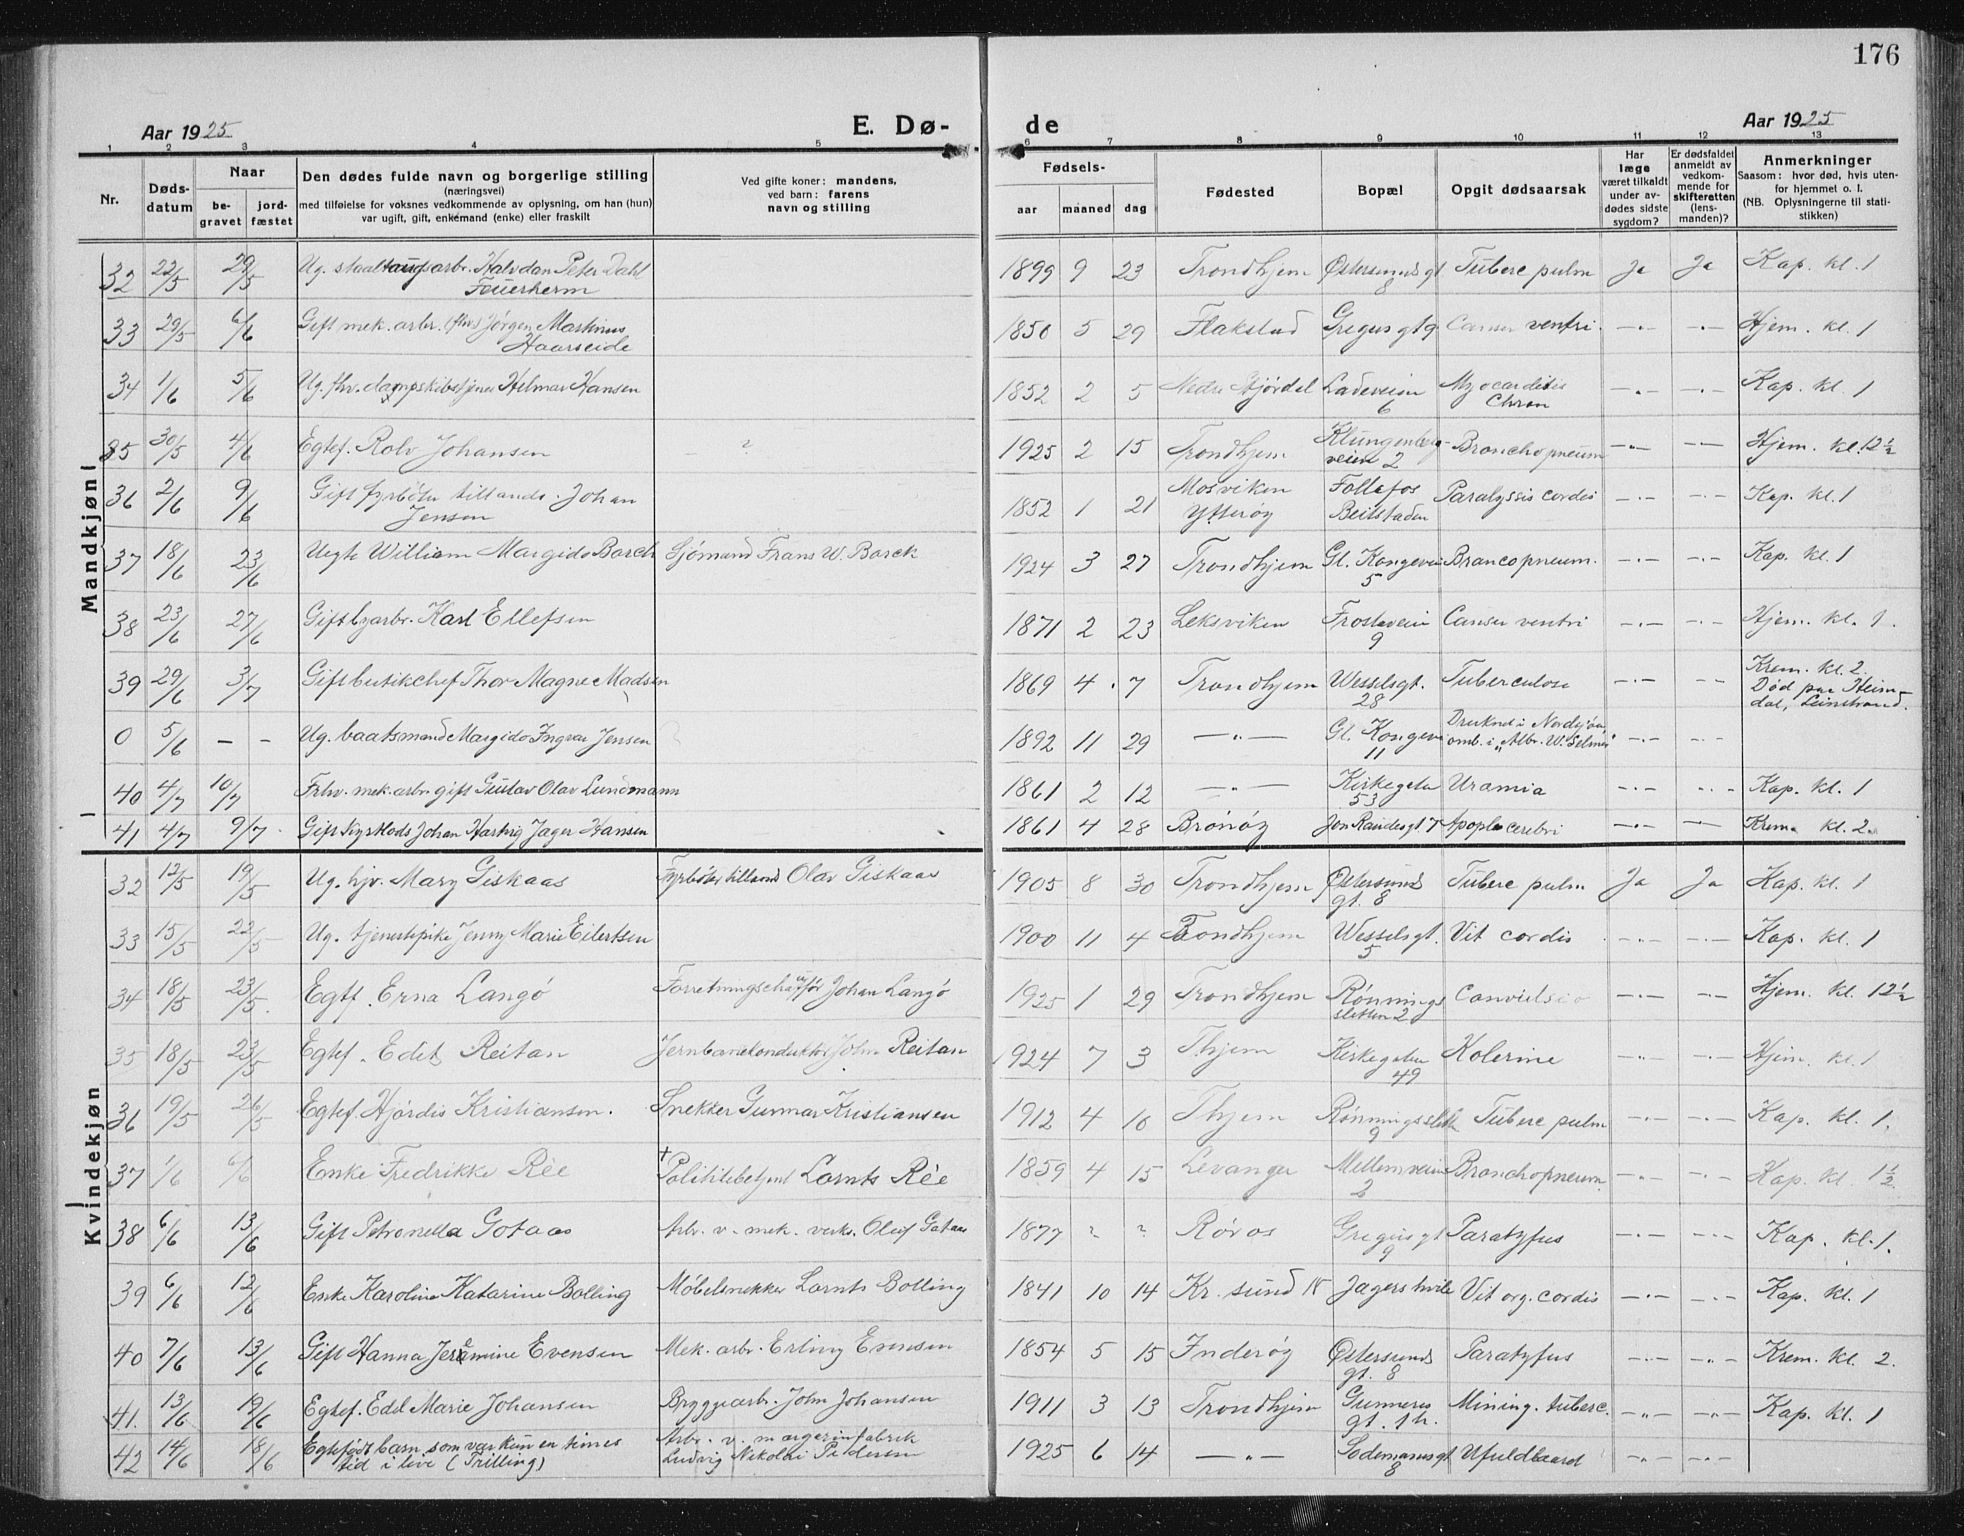 176
Aar 1925 E. Dø- de Aar 1925
1 2 3 4 5 6 7 8 9 10 11 12 13
Nr. Døds-datum Naar be-gravet jord-fæstet Den dødes fulde navn og borgerlige stilling (næringsvei) med tilføielse for voksnes vedkommende av oplysning, om han (hun) var ugift, gift, enkemand (enke) eller fraskilt Ved gifte koner: mandens, ved barn: farens navn og stilling Fødsels- aar maaned dag Fødested Bopæl Opgit dødsaarsak Har læge været tilkaldt under av-dødes sidste sygdom? Er dødsfaldet anmeldt av vedkom-mende for skifteretten (lens-manden)? Anmerkninger Saasom: hvor død, hvis uten-for hjemmet o. l. (NB. Oplysningerne til stati-stikken)
Mandkjøn
32 22/5 29/5 Ug. staaltaugsarbr. Halvdan Peter Dahl Feuerherm 1899 9 23 Trondhjem Østersundsgt 8 Tuberc pulm Ja Ja Kap. kl. 1
33 29/5 6/6 Gift mek. arbr. (fhv.) Jørgen Martinus Haarseide 1850 5 29 Flakstad Gregusgt 9 Canser ventri. -"- -"- Hjem. kl. 1
34 1/6 5/6 Ug. fhv. dampskibstjener Hilmar Hansen 1852 2 5 Nedre Stjørdal Ladeveien 6 Myocarditis Chron -"- -"- Kap. kl. 1
35 30/5 4/6 Egtef. Rolv Johansen - ? 1925 2 15 Trondhjem Klungenberg-veien 2 Bronchopneum -"- -"- Hjem. kl. 12½
36 2/6 9/6 Gift fyrbøter tillands. Johan Jensen 1852 1 21 Mosviken Ytterøy Follafos Beitstaden Paralyssis cordis -"- -"- Kap. kl. 1
37 18/6 23/6 Uegte William Margido Borch Sjømand Frans W. Borck 1924 3 27 Trondhjem Gl. Kongevei 5 Brancopneum. -"- -"- Kap. kl. 1
38 23/6 27/6 Gift byarbr. Karl Ellefsen 1871 2 23 Leksviken Frostaveien 9 Canser ventri -"- -"- Hjem. kl. 1.
39 29/6 3/7 Gift butikchef Thor Magne Madsen 1869 4 7 Trondhjem Wesselsgt. 28 Tuberculose -"- -"- Krem. kl. 2. Død paa Heim-dal, Leinstrand.
0 5/6 - - Ug. baatsmand Margido Ingvar Jensen 1892 11 29 -"- Gl. Kongevei 11 Druknet i Nordsjøen, omb. i "Albr. W. Selmer" -"- -"-
40 4/7 10/7 Frhv. mek. arbr. gift Gustav Olav Lundmann 1861 2 12 -"- Kirkegaten 53 Uramia -"- -"- Kap. kl. 1
41 4/7 9/7 Gift Kystlods Johan Hartvig Jager Hansen 1861 4 28 Brønøy Jon Raudesgt 7 Apoplex cerebri -"- -"- Krema kl. 2.
Kvindekjøn
32 12/5 19/5 Ug. hjv. Mary Giskaas Fyrbøter tilland Olav Giskaas 1905 8 30 Trondhjem Østersunds gt. 8 Tuberc pulm Ja Ja Kap. kl. 1
33 15/5 22/5 Ug. tjenestepike Jenny Marie Eilertsen 1900 11 4 Trondhjem Wesselsgt. 5 Vit cordis -"- -"- Kap. kl. 1
34 18/5 23/5 Egtf. Erna Langø Forretningschauffør Johan Langø 1925 1 29 Trondhjem Rønnings sletten 2 Convulsio -"- -"- Hjem. kl. 12½
35 18/5 23/5 Egtef. Edit Reitan Jernbanekonduktør John Reitan 1924 7 3 Thjem Kirkegaten 49 Kolerine -"- -"- Hjem. kl. 1
36 19/5 26/5 Egtef. Hjørdis Kristiansen. Snekker Gunnar Kristiansen 1912 4 16 Thjem Rønningsslett 9 Tuberc pulm -"- -"- Kap. kl. 1.
37 1/6 6/6 Enke Fredrikke Rèe + Polititebetjent Lornts Rèe 1859 4 15 Levanger Mellemveien 2 Bronchopneum. -"- -"- Kap. kl. 1½
38 6/6 13/6 Gift Petronella Gotaas Arbr. v. mek. verks. Oluf Gotaas 1877 ? ? Røros Gregusgt 9 Paratyfus -"- -"- Kap. kl. 1.
39 6/6 12/6 Enke Karoline Katarine Bolling Møbelsnekker Lornts Bolling 1841 10 14 Kr. sund N Jagers hvile Vit org. cordis -"- -"- Kap. kl. 1
40 7/6 13/6 Gift Hanna Jeremine Evensen Mek. arbr. Erling Evensen 1854 5 15 Inderøy Østersunds gt. 8 Paratyfus -"- -"- Krem. kl. 2.
41 13/6 19/6 Egtef. Edel Marie Johansen Bryggearbr. John Johansen 1911 3 13 Trondhjem Gunnerus gt. 1 h. Mining. tuberc. -"- -"- Kap. kl. 1
42 14/6 18/6 Egtefødt barn, som var kun en times tid i live (Trilling) Arbr. v. margerinfabrik Ludvig Nikolai Pedersen 1925 6 14 -"- Sodemansgt 8 Ufuldbaard -"- -"-